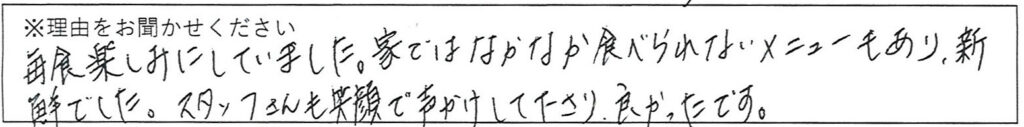 ※理由をお聞かせください
毎食楽しみにしていました。家ではなかなか食べられないメニューもあり、新
鮮でした。スタッフさんも笑顔で声かけして下さり、良かったです。